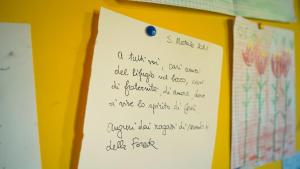 A tutti voi, cari amici
del Rifugio nel bosco, segni
di fraternità, di amore dove
si vive lo spirito di
Auguri dai ragazzi di
della Foresta